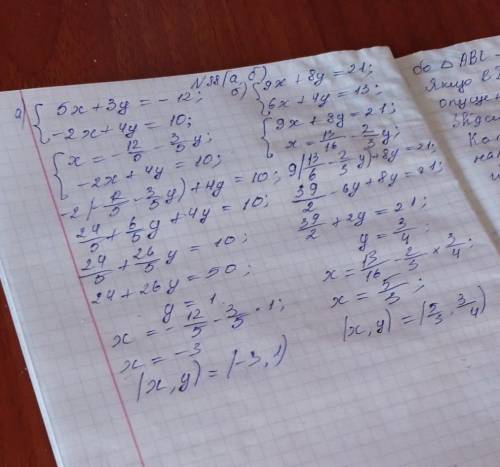 №38(а, б)
а) { 5x + 3y = -12;
-2x + 4y = 10;
{ x = -12/5 - 3/5 y;
-2x + 4y = 10;
-2(-12/5 - 3/5 y) + 4y = 10;
24/5 + 6/5 y + 4y = 10;
24/5 + 26/5 y = 10;
24 + 26y = 50;
y = 1
x = -12/5 - 3/5 * 1;
x = -3
(x, y) = (-3, 1)
б) { 9x + 8y = 21;
6x + 4y = 13;
{ 9x + 8y = 21;
x = 13/16 - 2/3 y;
9(13/6 - 2/3 y) + 8y = 21;
39/2 - 6y + 8y = 21;
39/2 + 2y = 21;
y = 3/4;
x = 13/16 - 2/3 × 3/4;
x = 5/3;
(x, y) = (5/3, 3/4)
бо △ ABC
Якщо в
опущен